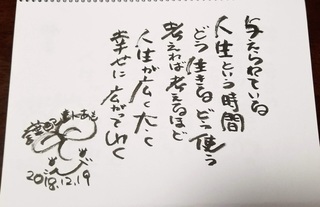 与えられている
人生という時間
どう生きる どう使う
考えれば考えるほど
人生が広く大きく
幸せに広がっていく
2018.12.19